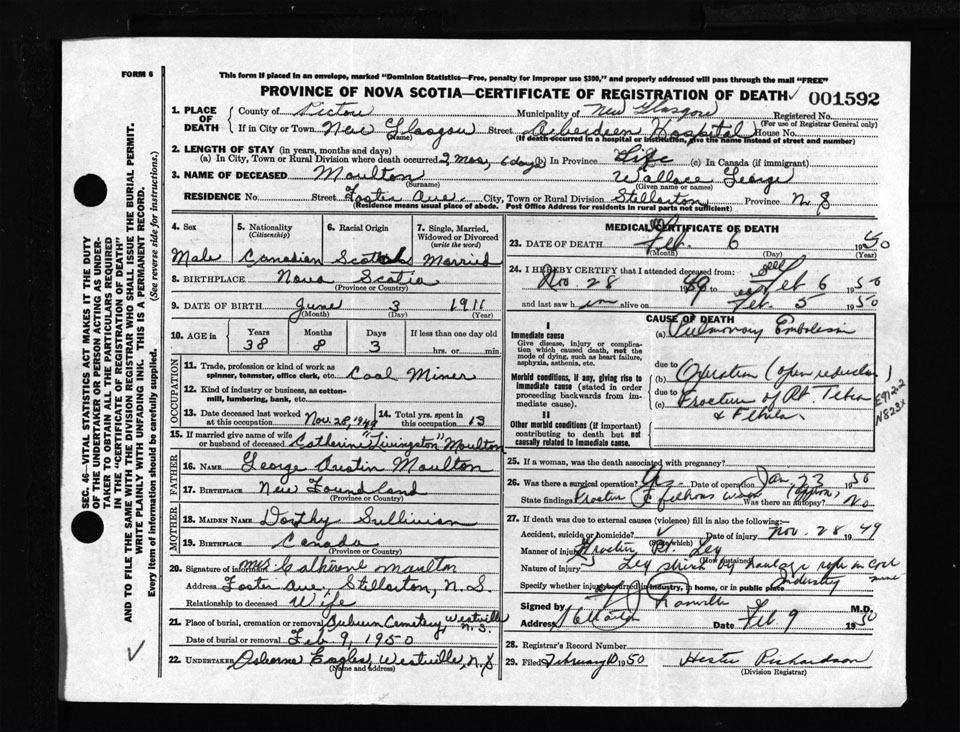 FORM 6
This form if placed in an envelope, marked "Dominion Statistics—Free, penalty for improper use $300," and properly addressed will pass through the mail "FREE"
PROVINCE OF NOVA SCOTIA—CERTIFICATE OF REGISTRATION OF DEATH 001592
1. PLACE OF DEATH County of Pictou Municipality of New Glasgow Registered No.
(For use of Registrar General only)
If in City or Town New Glasgow Street Aberdeen Hospital House No.
(Name) (If death occurred in a hospital or institution, give the name instead of street and number)
2. LENGTH OF STAY (in years, months and days)
(a) In City, Town or Rural Division where death occurred 2 mos, 6 days (b) In Province Life (c) In Canada (if immigrant)
3. NAME OF DECEASED Moulton Wallace George
(Surname) (Given name or names)
RESIDENCE No. Street Foster Ave. City, Town or Rural Division Stellarton Province N S
(Residence means usual place of abode. Post Office Address for residents in rural parts not sufficient)
4. Sex 5. Nationality (Citizenship) 6. Racial Origin 7. Single, Married, Widowed or Divorced (write the word)
Male Canadian Scotch Married
8. BIRTHPLACE Nova Scotia
(Province or Country)
9. DATE OF BIRTH June 3 1911
(Month) (Day) (Year)
10. AGE in Years Months Days If less than one day old
38 8 3 hrs. or min.
OCCUPATION
11. Trade, profession or kind of work as spinner, teamster, office clerk, etc. Coal Miner
12. Kind of industry or business, as cotton-mill, lumbering, bank, etc.
13. Date deceased last worked at this occupation Nov. 28, 1949 14. Total yrs. spent in this occupation 13
15. If married give name of wife or husband of deceased Catherine "Livingston" Moulton
FATHER
16. NAME George Austin Moulton
17. BIRTHPLACE New Foundland
(Province or Country)
MOTHER
18. MAIDEN NAME Dorthy Sullivian
19. BIRTHPLACE Canada
(Province or Country)
20. Signature of informant Mrs Catherine Moulton
Address Foster Ave, Stellarton, N.S.
Relationship to deceased Wife
21. Place of burial, cremation or removal Auburn Cemetery, Westville N.S.
Date of burial or removal Feb 9, 1950
22. UNDERTAKER Osborne Eagles, Westville, N.S
(Name and address)
MEDICAL CERTIFICATE OF DEATH
23. DATE OF DEATH Feb. 6 1950
(Month) (Day) (Year)
24. I HEREBY CERTIFY that I attended deceased from:
Nov. 28 1949 Feb 6 1950
and last saw him alive on Feb. 5 1950
CAUSE OF DEATH
I
Immediate cause
Give disease, injury or complication which caused death, not the mode of dying, such as heart failure, asphyxia, asthenia, etc.
(a) Pulmonary Embolism
due to
Morbid conditions, if any, giving rise to immediate cause (stated in order proceeding backwards from immediate cause).
(b) Operation (open reduction)
due to
(c) Fracture of Rt. Tibia & Fibula
E912.2
N823x
II
Other morbid conditions (if important) contributing to death but not causally related to immediate cause.
25. If a woman, was the death associated with pregnancy?
26. Was there a surgical operation? Yes Date of operation Jan 23 1950
State findings Was there an autopsy? No
27. If death was due to external causes (violence) fill in also the following:
Accident, suicide or homicide? Date of injury Nov. 28 1949
(State which)
Manner of injury Fractur Rt. Leg
(How sustained)
Nature of injury Leg struck by haulage rope in coal mine
Specify whether injury occurred in industry, in home, or in public place Industry
Signed by M.D.
Address Date Feb 9 1950
28. Registrar's Record Number
29. Filed February 10 1950 Hester Richardson
(Division Registrar)
SEC. 46—VITAL STATISTICS ACT MAKES IT THE DUTY
OF THE UNDERTAKER OR PERSON ACTING AS UNDERTAKER TO OBTAIN ALL THE PARTICULARS REQUIRED
IN THE "CERTIFICATE OF REGISTRATION OF DEATH"
AND TO FILE THE SAME WITH THE DIVISION REGISTRAR WHO SHALL ISSUE THE BURIAL PERMIT.
WRITE PLAINLY WITH UNFADING INK. THIS IS A PERMANENT RECORD.
Every item of Information should be carefully supplied. (See reverse side for instructions.)